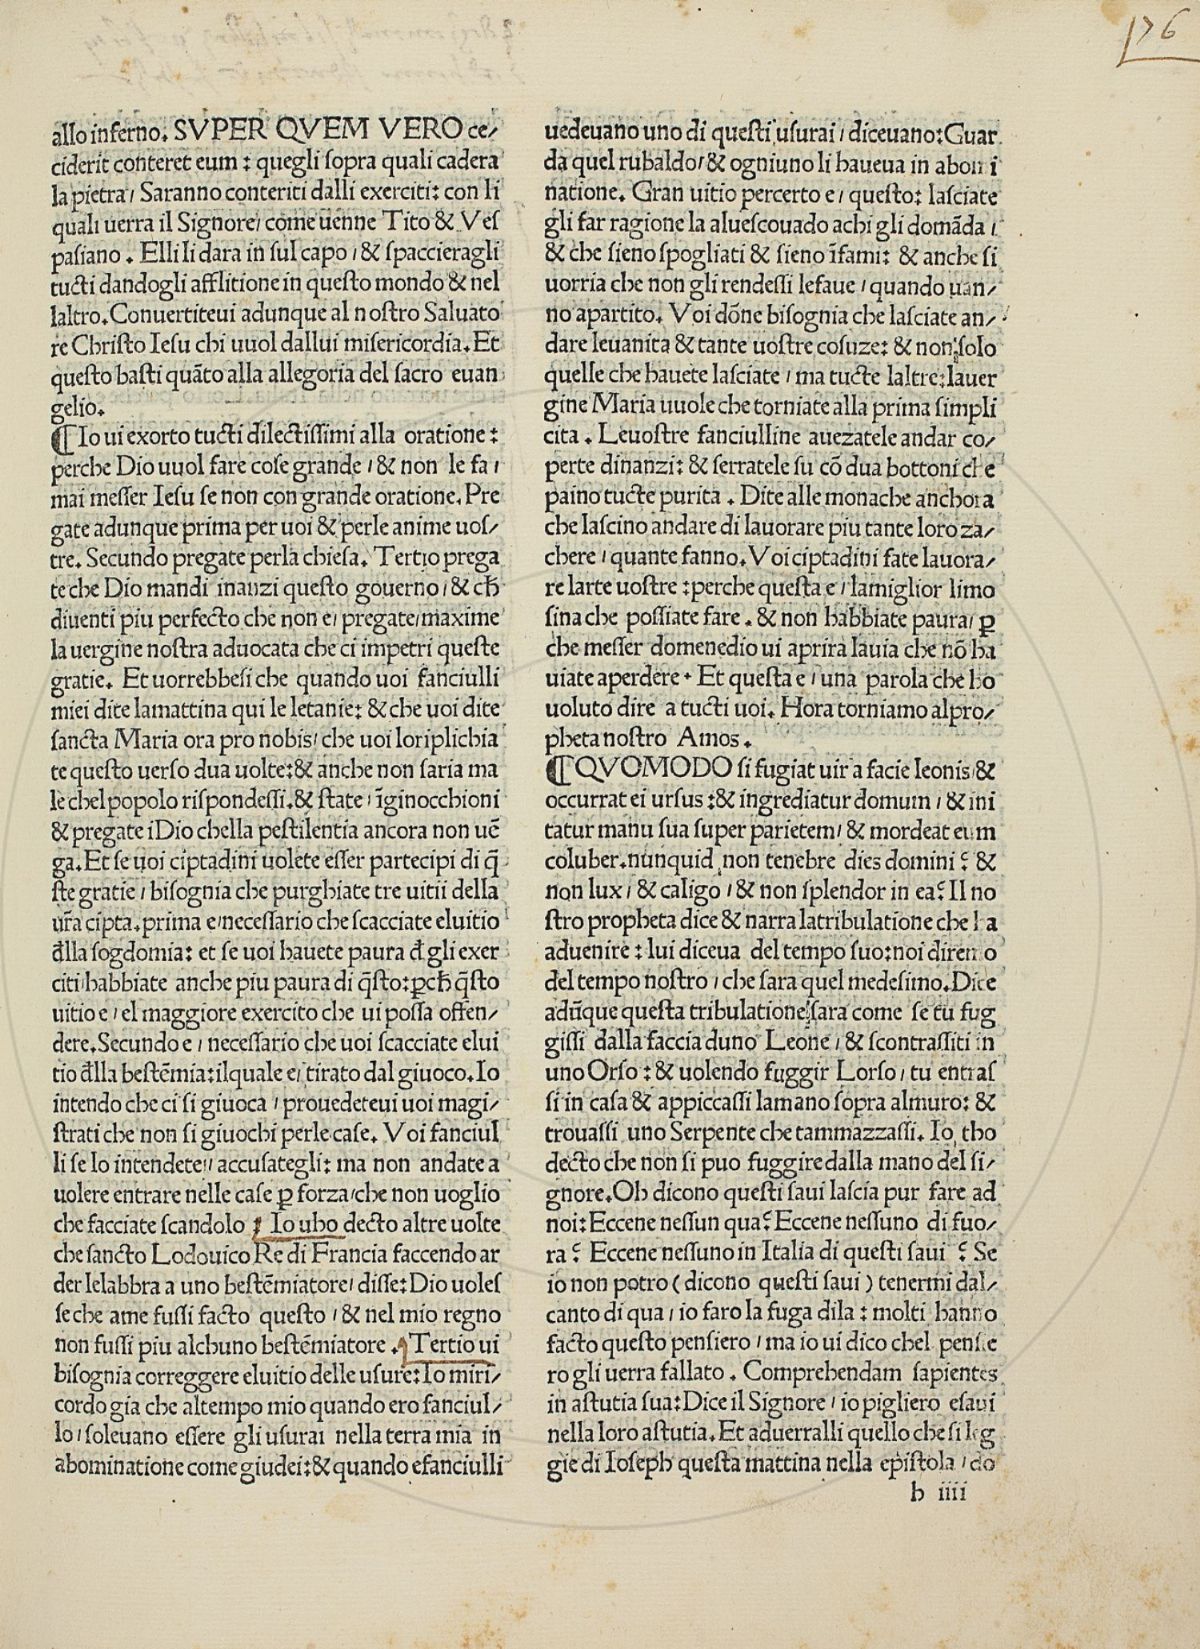 176
allo inferno. SVPER QVEM VERO ce/
ciderit conteret eum : quegli sopra quali cadera
la pietra/ Saranno conteriti dalli exerciti: con li
quali uerra il Signore/ come uenne Tito & Ves
pasiano . Elli li dara in sul capo / & spaccieragli
tucti dandogli afflitione in questo mondo & nel
laltro. Conuertiteui adunque al nostro Saluato
re Christo Iesu chi uuol dallui misericordia. Et
questo basti quāto alla allegoria del sacro euan
gelio.
¶ Io ui exorto tucti dilectissimi alla oratione :
perche Dio uuol fare cose grande / & non le fa /
mai messer Iesu se non con grande oratione. Pre
gate adunque prima per uoi & perle anime uos/
tre. Secundo pregate perla chiesa. Tertio prega
te che Dio mandi inanzi questo gouerno/ & cħ
diuenti piu perfecto che non e/ pregate/maxime
la uergine nostra aduocata che ci impetri queste
gratie. Et uorrebbesi che quando uoi fanciulli
miei dite lamattina qui le letanie: & che uoi dite
sancta Maria ora pro nobis/ che uoi loriplichia
te questo uerso dua uolte:& anche non saria ma
le chel popolo rispondessi.& state / īginocchioni
& pregate iDio chella pestilentia ancora non uē
ga. Et se uoi ciptadini uolete esser partecipi di q̄
ste gratie / bisognia che purghiate tre uitii della
ur̄a cipta. prima e/necessario che scacciate eluitio
đlla sogdomia: et se uoi hauete paura đ gli exer
citi habbiate anche piu paura di q̄sto: ꝑcħ q̄sto
uitio e / el maggiore exercito che ui possa offen/
dere. Secundo e / necessario che uoi scacciate elui
tio đlla bestēmia: ilquale e/ tirato dal giuoco. Io
intendo che ci si giuoca / prouedeteui uoi magi/
strati che non si giuochi perle case. Voi fanciul
li se lo intendete/ accusategli: ma non andate a
uolere entrare nelle case ꝑ forza/che non uoglio
che facciate scandolo Io uho decto altre uolte
che sancto Lodouico Re di Francia faccendo ar
der lelabbra a uno bestēmiatore/ disse: Dio uoles
se che ame fussi facto questo / & nel mio regno
non fussi piu alchuno bestēmiatore . Tertio ui
bisognia correggere eluitio delle usure: Io miri/
cordo gia che altempo mio quando ero fanciul/
lo / soleuano essere gli usurai nella terra mia in
abominatione come giudei:& quando efanciulli
uedeuano uno di questi usurai / diceuano: Guar
da quel rubaldo/ & ogniuno li haueua in abomi
natione. Gran uitio percerto e / questo: lasciate
gli far ragione la aluescouado achi gli domāda /
& che sieno spogliati & sieno īfami: & anche si
uorria che non gli rendessi lefaue / quando uan/
no apartito. Voi dōne bisognia che lasciate an/
dare leuanita & tante uostre cosuze: & non solo
quelle che hauete lasciate / ma tucte laltre: lauer
gine Maria uuole che torniate alla prima simpli
cita . Leuostre fanciulline auezatele andar co/
perte dinanzi: & serratele su cō dua bottoni che
paino tucte purita . Dite alle monache anchora
che lascino andare di lauorare piu tante loro za/
chere / quante fanno. Voi ciptadini fate lauora/
re larte uostre : perche questa e / lamiglior limo
sina che possiate fare . & non habbiate paura/ ꝑ
che messer domenedio ui aprira lauia che nō ha
uiate aperdere . Et questa e / una parola che ho
uoluto dire a tucti uoi. Hora torniamo alpro/
pheta nostro Amos .
¶ QVOMODO si fugiat uir a facie leonis/ &
occurrat ei ursus :& ingrediatur domum / & ini
tatur manu sua super parietem/ & mordeat eum
coluber. nunquid non tenebre dies domini ? &
non lux / & caligo / & non splendor in ea? Il no
stro propheta dice & narra latribulatione che ha
aduenire : lui diceua del tempo suo: noi direno
del tempo nostro / che sara quel medesimo. Dice
adūque questa tribulatione sara come se tu fug
gissi dalla faccia duno Leone / & scontrassiti in
uno Orso : & uolendo fuggir Lorso / tu entras
si in casa & appiccassi lamano sopra almuro: &
trouassi uno Serpente che tammazzassi. Io tho
decto che non si puo fuggire dalla mano del si/
gnore. Oh dicono questi saui lascia pur fare ad
noi: Eccene nessun qua? Eccene nessuno di fuo/
ra ? Eccene nessuno in Italia di questi saui ? Se
io non potro ( dicono questi saui ) tenermi dal/
canto di qua / io faro la fuga dila : molti hanno
facto questo pensiero / ma io ui dico chel pensie
ro gli uerra fallato . Comprehendam sapientes
in astutia sua: Dice il Signore / io pigliero esaui
nella loro astutia. Et aduerralli quello che si leg
gie di Ioseph questa mattina nella epistola / do
h iiii